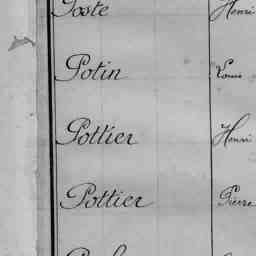 Poste Henri
Potin Louis
Pottier Henri
Pottier Pierre